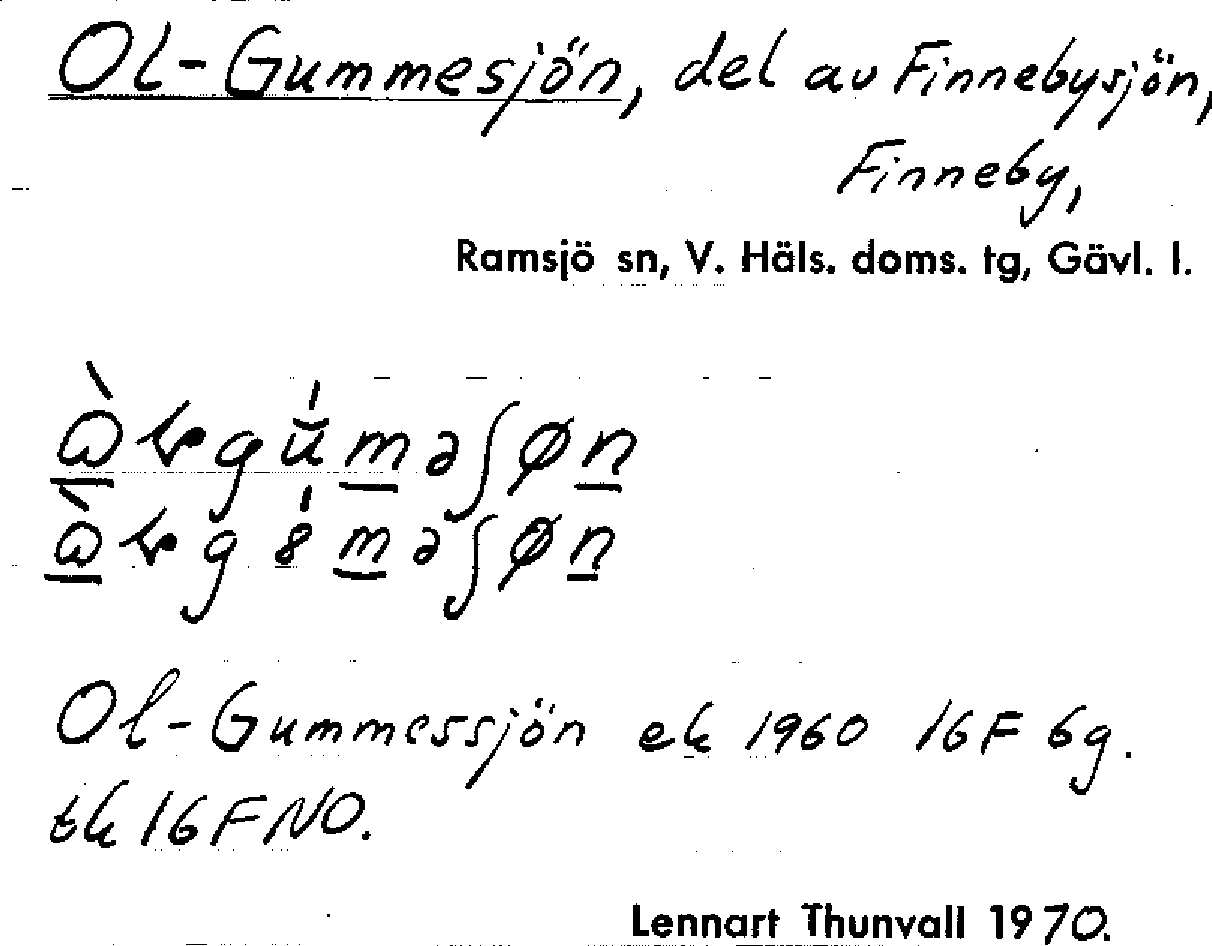 Ol-Gummesjön, del av Finnebysjön,
Finneby,
Ramsjö sn, V. Häls. doms. tg, Gävl. l.
Ol-Gummessjön ek 1960 16F 6g.
tk 16F NO.
Lennart Thunvall 1970.